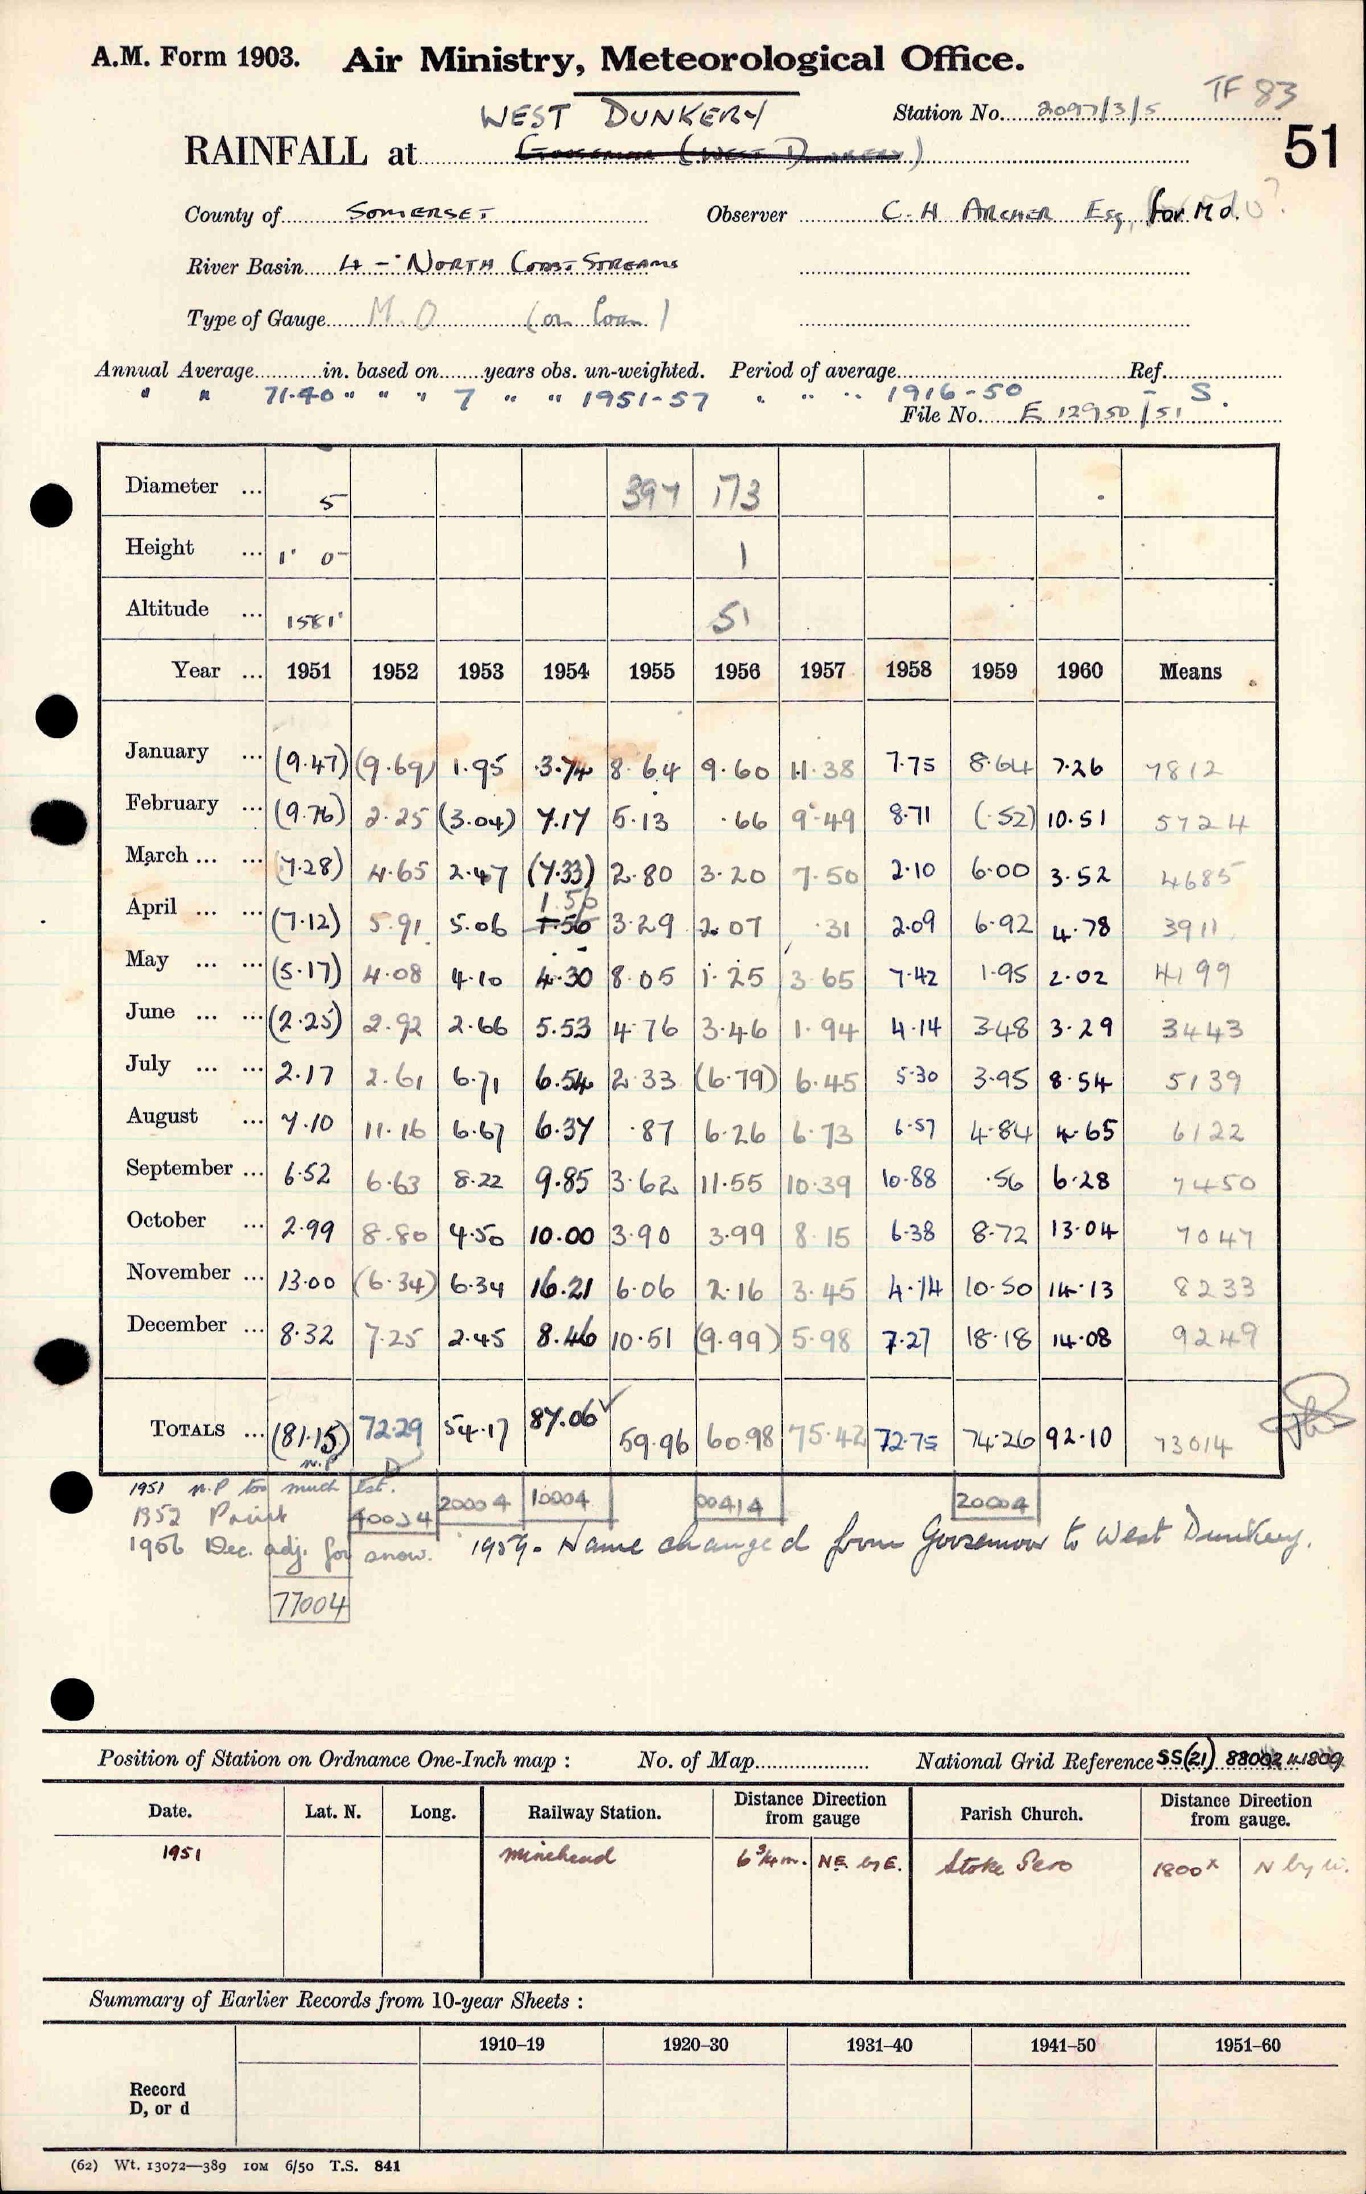 A.M. Form 1903. Air Ministry, Meteorological Office.
TF 83
WEST DUNKERY
Station No. 2097/3/5
51
RAINFALL at Goosemoor (West Dunkery)
County of SOMERSET Observer C. H ARCHER Esq, for M O.
River Basin 4 - NORTH COAST STREAMS
Type of Gauge M.O (on loan)
Annual Average in. based on years obs. un-weighted. Period of average Ref.
" " 71.40 " " " 7 " " 1951-57 " " " 1916-50 - S.
File No. E 12950/51
Diameter ... 5 397 173
Height ... 1' 0" 1
Altitude ... 1581' 51
Year ... 1951 1952 1953 1954 1955 1956 1957 1958 1959 1960 Means
January ... (9.47) (9.69) 1.95 3.74 8.64 9.60 11.38 7.75 8.64 7.26 7812
February ... (9.76) 2.25 (3.04) 7.17 5.13 .66 9.49 8.71 (.52) 10.51 5724
March ... ... (7.28) 4.65 2.47 (7.33) 2.80 3.20 7.50 2.10 6.00 3.52 4685
1.56
April ... ... (7.12) 5.91 5.06 1.56 3.29 2.07 .31 2.09 6.92 4.78 3911
May ... ... (5.17) 4.08 4.10 4.30 8.05 1.25 3.65 7.42 1.95 2.02 4199
June ... ... (2.25) 2.92 2.66 5.53 4.76 3.46 1.94 4.14 3.48 3.29 3443
July ... ... 2.17 2.61 6.71 6.54 2.33 (6.79) 6.45 5.30 3.95 8.54 5139
August ... 7.10 11.16 6.67 6.37 .87 6.26 6.73 6.57 4.84 4.65 6122
September ... 6.52 6.63 8.22 9.85 3.62 11.55 10.39 10.88 .56 6.28 7450
October ... 2.99 8.80 4.50 10.00 3.90 3.99 8.15 6.38 8.72 13.04 7047
November ... 13.00 (6.34) 6.34 16.21 6.06 2.16 3.45 4.14 10.50 14.13 8233
December ... 8.32 7.25 2.45 8.46 10.51 (9.99) 5.98 7.27 18.18 14.08 9249
TOTALS ... (81.15) 72.29 54.17 87.06 59.96 60.98 75.42 72.75 74.26 92.10 73014
n.P
1951 n.P too much est.
40034 20004 10004 00414 20004
1952 Print
1956 Dec. adj. for snow. 1959. Name changed from Goosemoor to West Dunkery.
77004
Position of Station on Ordnance One-Inch map : No. of Map National Grid Reference SS(21) 88002 41809
Date. Lat. N. Long. Railway Station. Distance Direction from gauge Parish Church. Distance Direction from gauge.
1951 Minehead 6 3/4 m. NE by E. Stoke Pero 1800x N by W.
Summary of Earlier Records from 10-year Sheets :
1910–19 1920–30 1931–40 1941–50 1951–60
Record
D, or d
(62) Wt. 13072—389 10M 6/50 T.S. 841